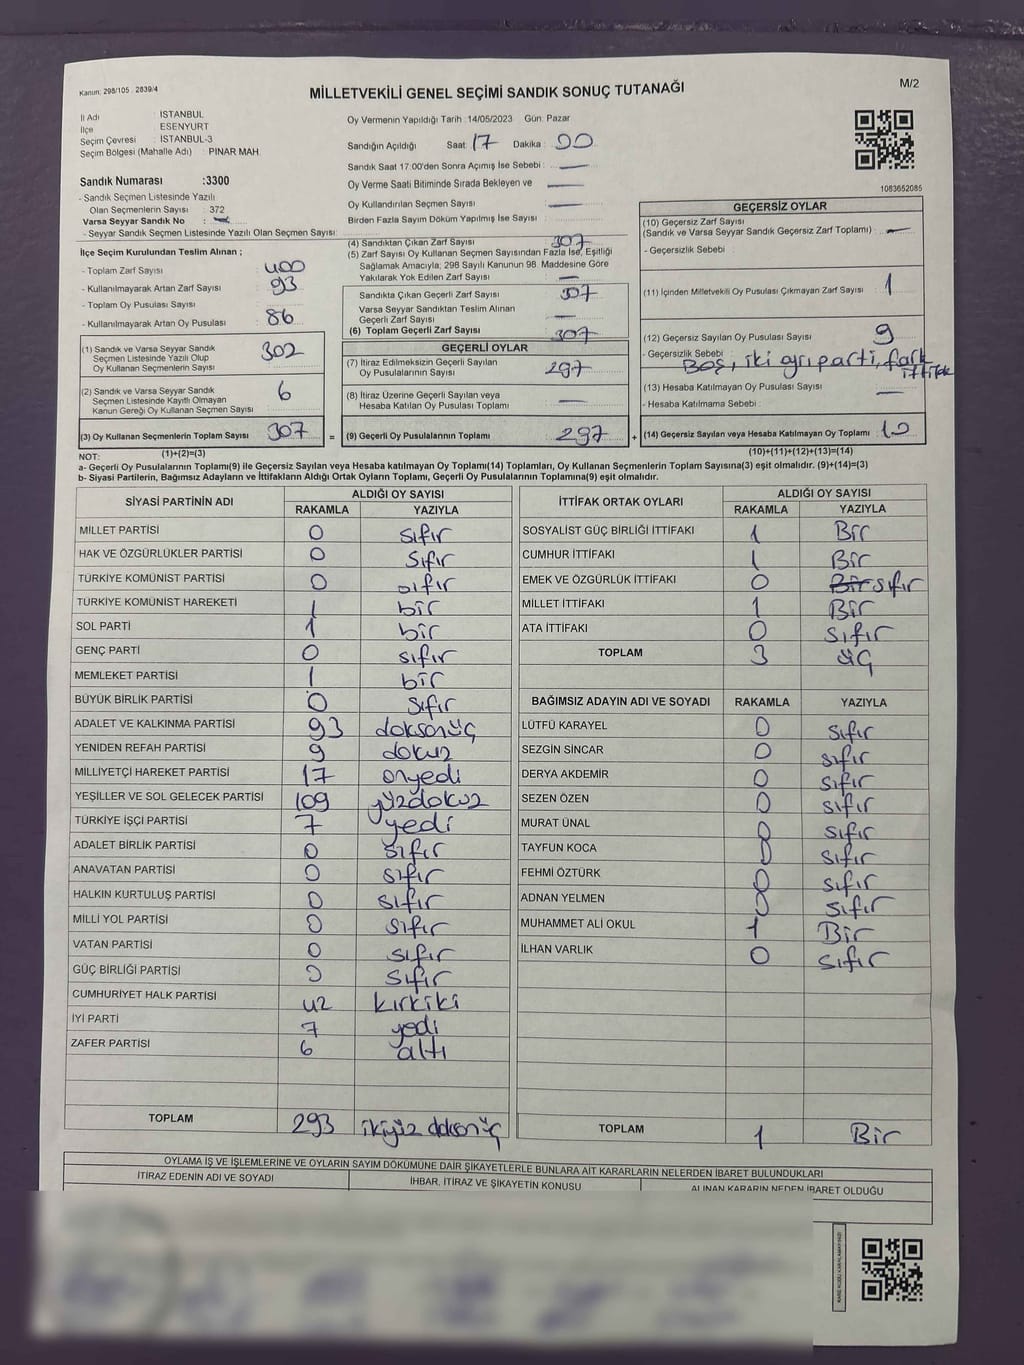 Kanun: 298/105 . 2839/4
MİLLETVEKİLİ GENEL SEÇİMİ SANDIK SONUÇ TUTANAĞI
M/2
İl Adı : İSTANBUL
İlçe : ESENYURT
Seçim Çevresi : İSTANBUL-3
Seçim Bölgesi (Mahalle Adı) : PINAR MAH.
Oy Vermenin Yapıldığı Tarih :14/05/2023 Gün: Pazar
Sandığın Açıldığı Saat: 17 Dakika: 00
Sandık Saat 17:00'den Sonra Açımış İse Sebebi : —
Oy Verme Saati Bitiminde Sırada Bekleyen ve —
Oy Kullandırılan Seçmen Sayısı : —
Birden Fazla Sayım Döküm Yapılmış İse Sayısı :
1083652085
Sandık Numarası :3300
- Sandık Seçmen Listesinde Yazılı
Olan Seçmenlerin Sayısı : 372
Varsa Seyyar Sandık No : —
- Seyyar Sandık Seçmen Listesinde Yazılı Olan Seçmen Sayısı:
İlçe Seçim Kurulundan Teslim Alınan ;
- Toplam Zarf Sayısı : 400
- Kullanılmayarak Artan Zarf Sayısı : 93
- Toplam Oy Pusulası Sayısı :
- Kullanılmayarak Artan Oy Pusulası : 86
(1) Sandık ve Varsa Seyyar Sandık
Seçmen Listesinde Yazılı Olup
Oy Kullanan Seçmenlerin Sayısı : 302
(2) Sandık ve Varsa Seyyar Sandık
Seçmen Listesinde Kayıtlı Olmayan
Kanun Gereği Oy Kullanan Seçmen Sayısı : 6
(3) Oy Kullanan Seçmenlerin Toplam Sayısı : 307
(1)+(2)=(3)
(4) Sandıktan Çıkan Zarf Sayısı : 307
(5) Zarf Sayısı Oy Kullanan Seçmen Sayısından Fazla İse, Eşitliği
Sağlamak Amacıyla; 298 Sayılı Kanunun 98. Maddesine Göre
Yakılarak Yok Edilen Zarf Sayısı : —
Sandıkta Çıkan Geçerli Zarf Sayısı : 307
Varsa Seyyar Sandıktan Teslim Alınan
Geçerli Zarf Sayısı : —
(6) Toplam Geçerli Zarf Sayısı : 307
GEÇERLİ OYLAR
(7) İtiraz Edilmeksizin Geçerli Sayılan
Oy Pusulalarının Sayısı : 297
(8) İtiraz Üzerine Geçerli Sayılan veya
Hesaba Katılan Oy Pusulası Toplamı : —
= (9) Geçerli Oy Pusulalarının Toplamı : 297
GEÇERSİZ OYLAR
(10) Geçersiz Zarf Sayısı
(Sandık ve Varsa Seyyar Sandık Geçersiz Zarf Toplamı) : —
- Geçersizlik Sebebi :
(11) İçinden Milletvekili Oy Pusulası Çıkmayan Zarf Sayısı : 1
(12) Geçersiz Sayılan Oy Pusulası Sayısı : 9
- Geçersizlik Sebebi : Boş, iki ayrı parti, fark
ittifak
(13) Hesaba Katılmayan Oy Pusulası Sayısı : —
- Hesaba Katılmama Sebebi :
+ (14) Geçersiz Sayılan veya Hesaba Katılmayan Oy Toplamı : 10
(10)+(11)+(12)+(13)=(14)
NOT:
a- Geçerli Oy Pusulalarının Toplamı(9) ile Geçersiz Sayılan veya Hesaba katılmayan Oy Toplamı(14) Toplamları, Oy Kullanan Seçmenlerin Toplam Sayısına(3) eşit olmalıdır. (9)+(14)=(3)
b- Siyasi Partilerin, Bağımsız Adayların ve İttifakların Aldığı Ortak Oyların Toplamı, Geçerli Oy Pusulalarının Toplamına(9) eşit olmalıdır.
SİYASİ PARTİNİN ADI ALDIĞI OY SAYISI
RAKAMLA YAZIYLA
MİLLET PARTİSİ 0 sıfır
HAK VE ÖZGÜRLÜKLER PARTİSİ 0 sıfır
TÜRKİYE KOMÜNİST PARTİSİ 0 sıfır
TÜRKİYE KOMÜNİST HAREKETİ 1 bir
SOL PARTİ 1 bir
GENÇ PARTİ 0 sıfır
MEMLEKET PARTİSİ 1 bir
BÜYÜK BİRLİK PARTİSİ 0 sıfır
ADALET VE KALKINMA PARTİSİ 93 doksanüç
YENİDEN REFAH PARTİSİ 9 dokuz
MİLLİYETÇİ HAREKET PARTİSİ 17 onyedi
YEŞİLLER VE SOL GELECEK PARTİSİ 109 yüzdokuz
TÜRKİYE İŞÇİ PARTİSİ 7 yedi
ADALET BİRLİK PARTİSİ 0 sıfır
ANAVATAN PARTİSİ 0 sıfır
HALKIN KURTULUŞ PARTİSİ 0 sıfır
MİLLİ YOL PARTİSİ 0 sıfır
VATAN PARTİSİ 0 sıfır
GÜÇ BİRLİĞİ PARTİSİ 0 sıfır
CUMHURİYET HALK PARTİSİ 42 kırkiki
İYİ PARTİ 7 yedi
ZAFER PARTİSİ 6 altı
TOPLAM 293 ikiyüz doksanüç
İTTİFAK ORTAK OYLARI ALDIĞI OY SAYISI
RAKAMLA YAZIYLA
SOSYALİST GÜÇ BİRLİĞİ İTTİFAKI 1 Bir
CUMHUR İTTİFAKI 1 Bir
EMEK VE ÖZGÜRLÜK İTTİFAKI 0 Bir sıfır
MİLLET İTTİFAKI 1 Bir
ATA İTTİFAKI 0 sıfır
TOPLAM 3 üç
BAĞIMSIZ ADAYIN ADI VE SOYADI RAKAMLA YAZIYLA
LÜTFÜ KARAYEL 0 sıfır
SEZGİN SİNCAR 0 sıfır
DERYA AKDEMİR 0 sıfır
SEZEN ÖZEN 0 sıfır
MURAT ÜNAL 0 sıfır
TAYFUN KOCA 0 sıfır
FEHMİ ÖZTÜRK 0 sıfır
ADNAN YELMEN 0 sıfır
MUHAMMET ALİ OKUL 1 Bir
İLHAN VARLIK 0 sıfır
TOPLAM 1 Bir
OYLAMA İŞ VE İŞLEMLERİNE VE OYLARIN SAYIM DÖKÜMÜNE DAİR ŞİKAYETLERLE BUNLARA AİT KARARLARIN NELERDEN İBARET BULUNDUKLARI
İTİRAZ EDENİN ADI VE SOYADI İHBAR, İTİRAZ VE ŞİKAYETİN KONUSU ALINAN KARARIN NEDEN İBARET OLDUĞU